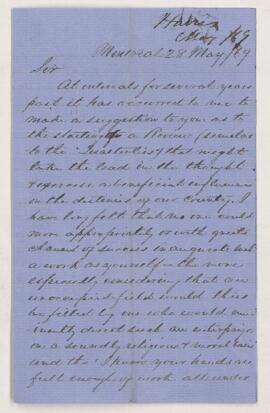 Harris
May /69
Montreal 28 May /69
Sir
At intervals for several years
past it has occurred to me to
make a suggestion to you as to
the starting of a Review (similar
to the Quarterlies) that might
take the lead in the thought
& exercise a beneficial influence
on the destinies of our Country.
I have long felt that no one could
more appropriately or with greater
chances of success inaugurate such
a work as yourself – the more
especially considering that an
unoccupied field would thus
be filled by one who would
direct such an enterprise
on a soundly religious & moral basis
and tho' I know your hands are
full enough of work all under